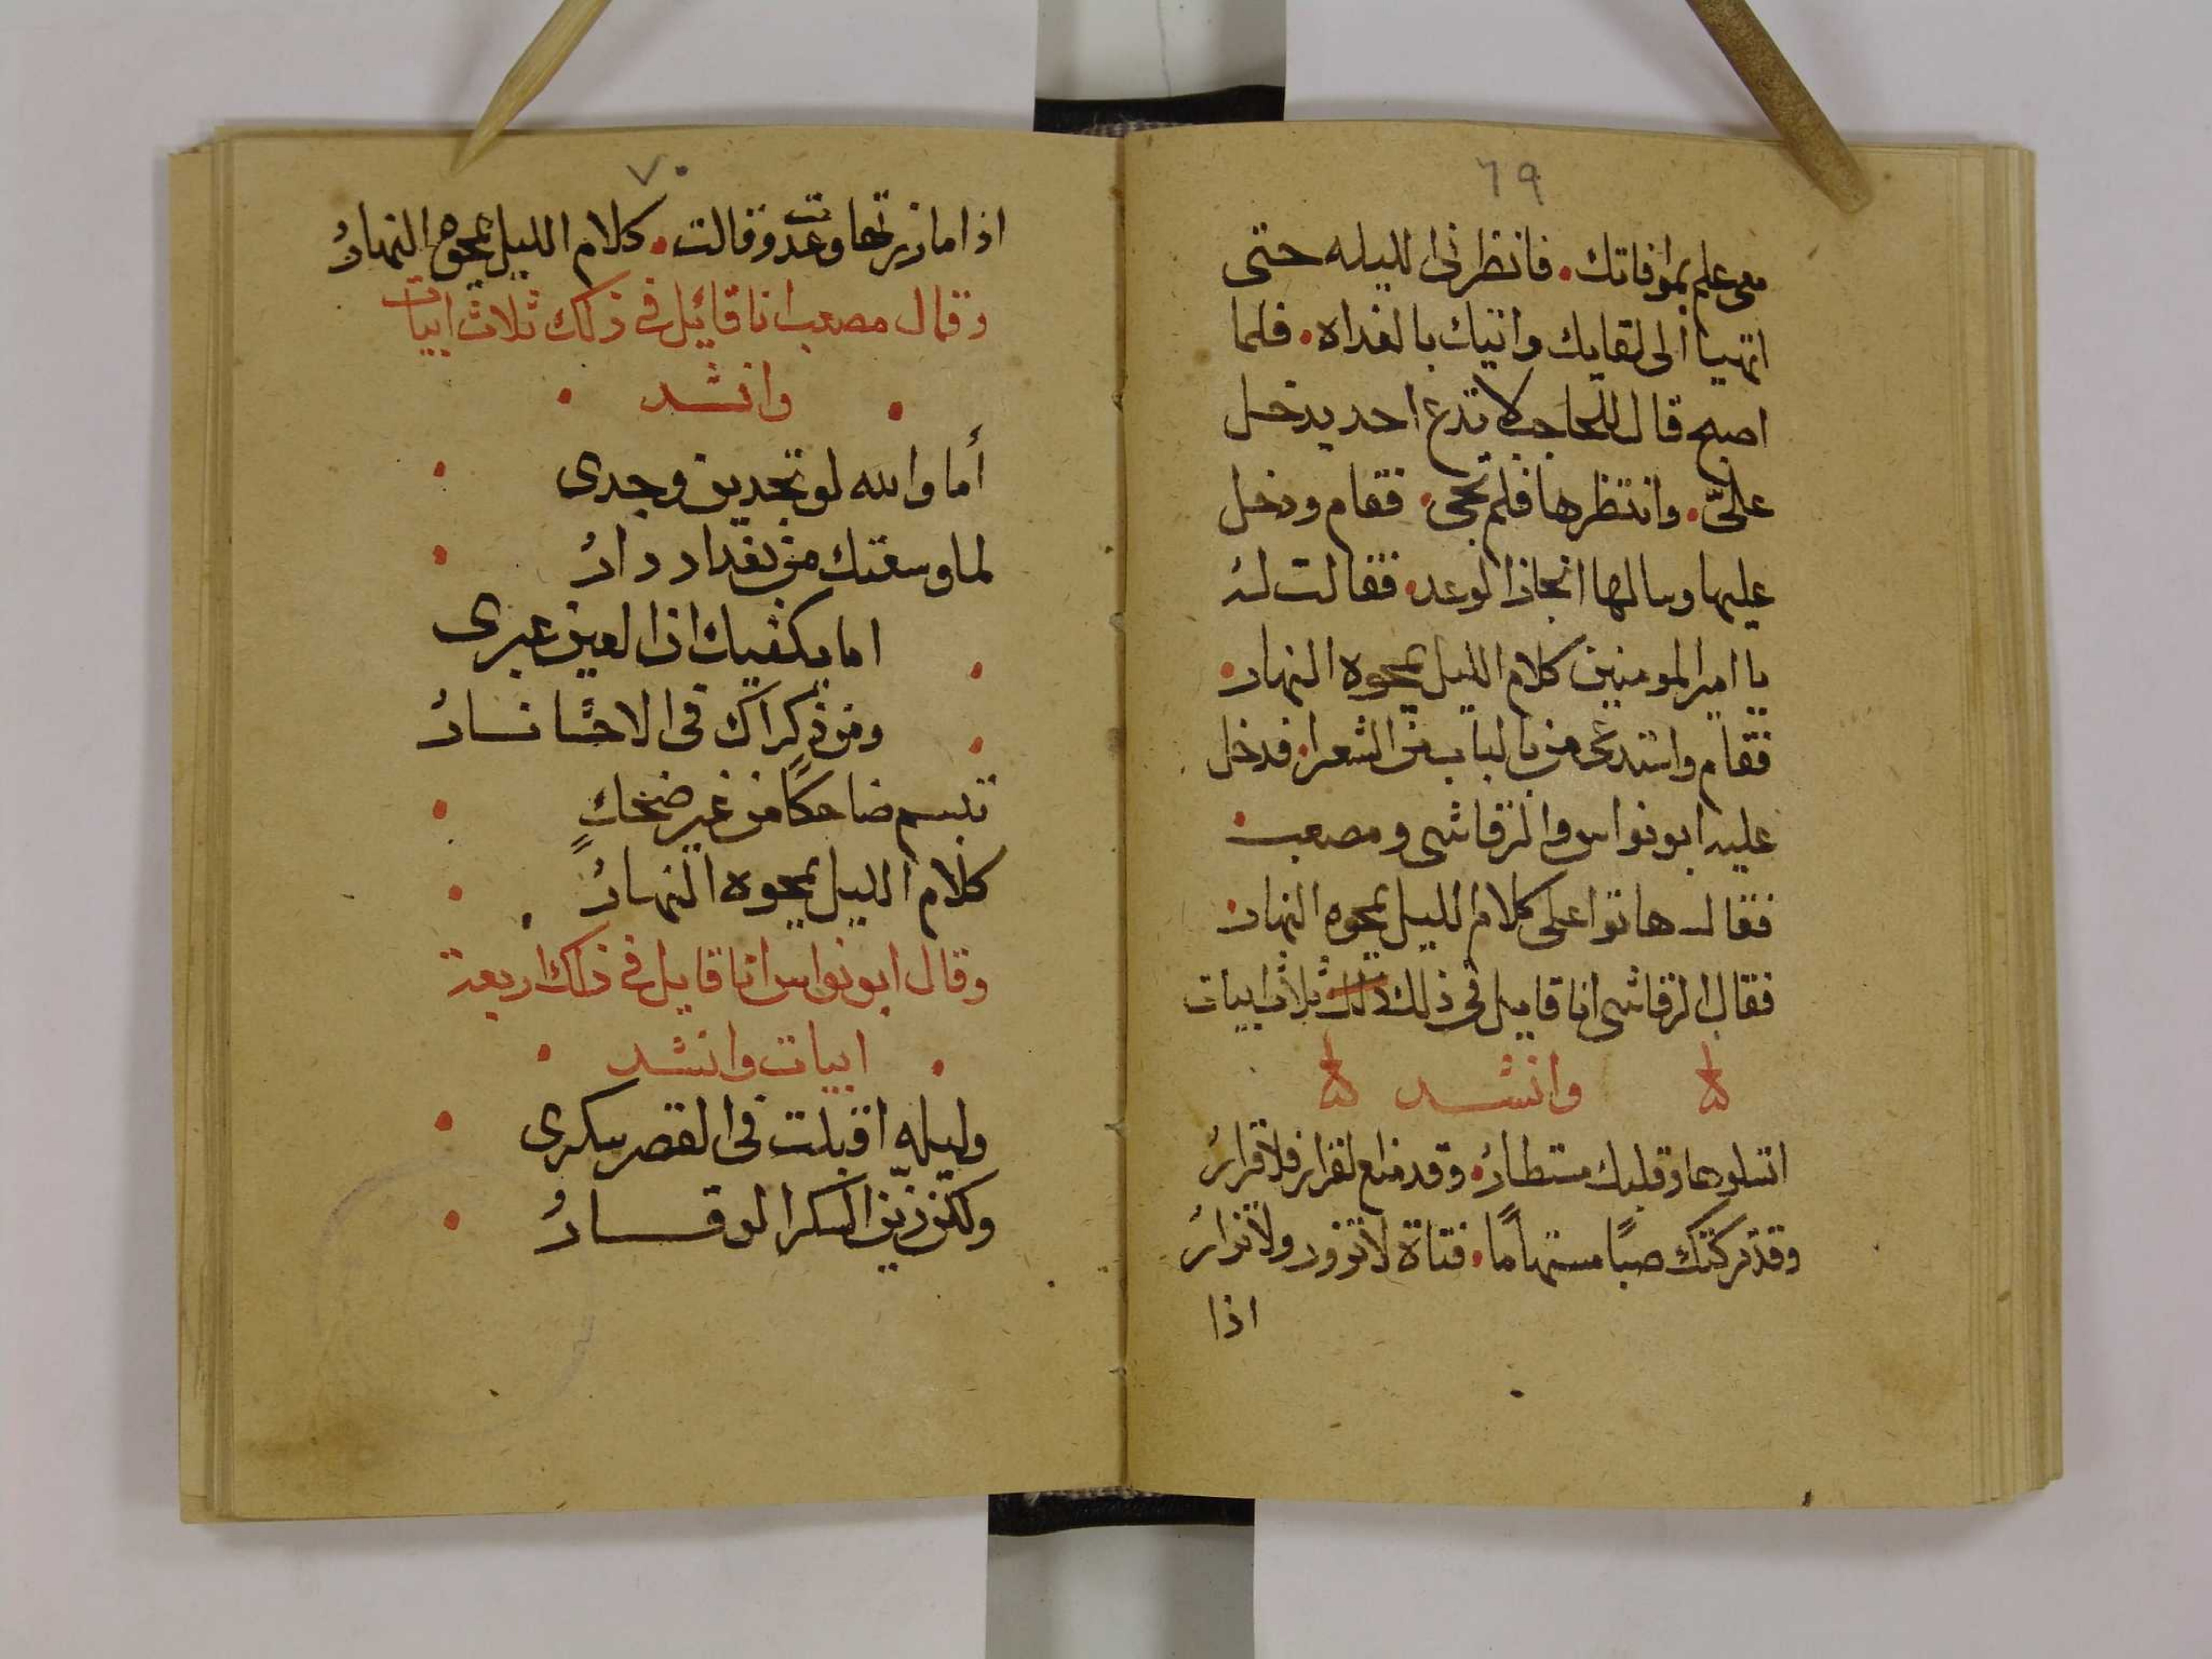 ٦٩
معى علم بموافاتك. فانظرنى الليله حتى
اتهيا الى لقايك واتيك بالغداه. فلما
اصبح قال للحاجب لا تدع احد يدخل
علىَّ. وانتظرها فلم تجى. فقام ودخل
عليها وسالها انجاز الوعد. فقالت له
يا امير المومنين كلام الليل يمحوه النهار.
فقام واستدعى من بالباب من الشعرا. فدخل
عليه ابو نواس والرقاشى ومصعب.
فقال هاتوا على كلام الليل يمحوه النهار.
فقال الرقاشى انا قايل فى ذلك ذلك ثلاث ابيات
وانشد
اتسلوها وقلبك مستطارُ. وقد منع القرار فلا قرارُ
وقد تركتك صبًا مستهامًا. فتاة لا تزور ولا تزارُ
اذا
٧٠
اذا ما زرتها وعدت وقالت. كلام الليل يمحوه النهارُ
وقال مصعب انا قائل فى ذلك ثلاث ابيات
. وانشد .
أما والله لو تجدين وجدى .
لما وسعتك من بغداد دارُ .
. اما يكفيك ان العين عبرى
. ومن ذكراك فى الاحشا نارُ
تبسم ضاحكًا من غير ضحكٍ .
كلام الليل يمحوه النهارُ .
وقال ابو نواس انا قايل فى ذلك اربعة
. ابيات وانشد .
وليله اقبلت فى القصر سكرى .
ولكن زين السكر الوقارُ .